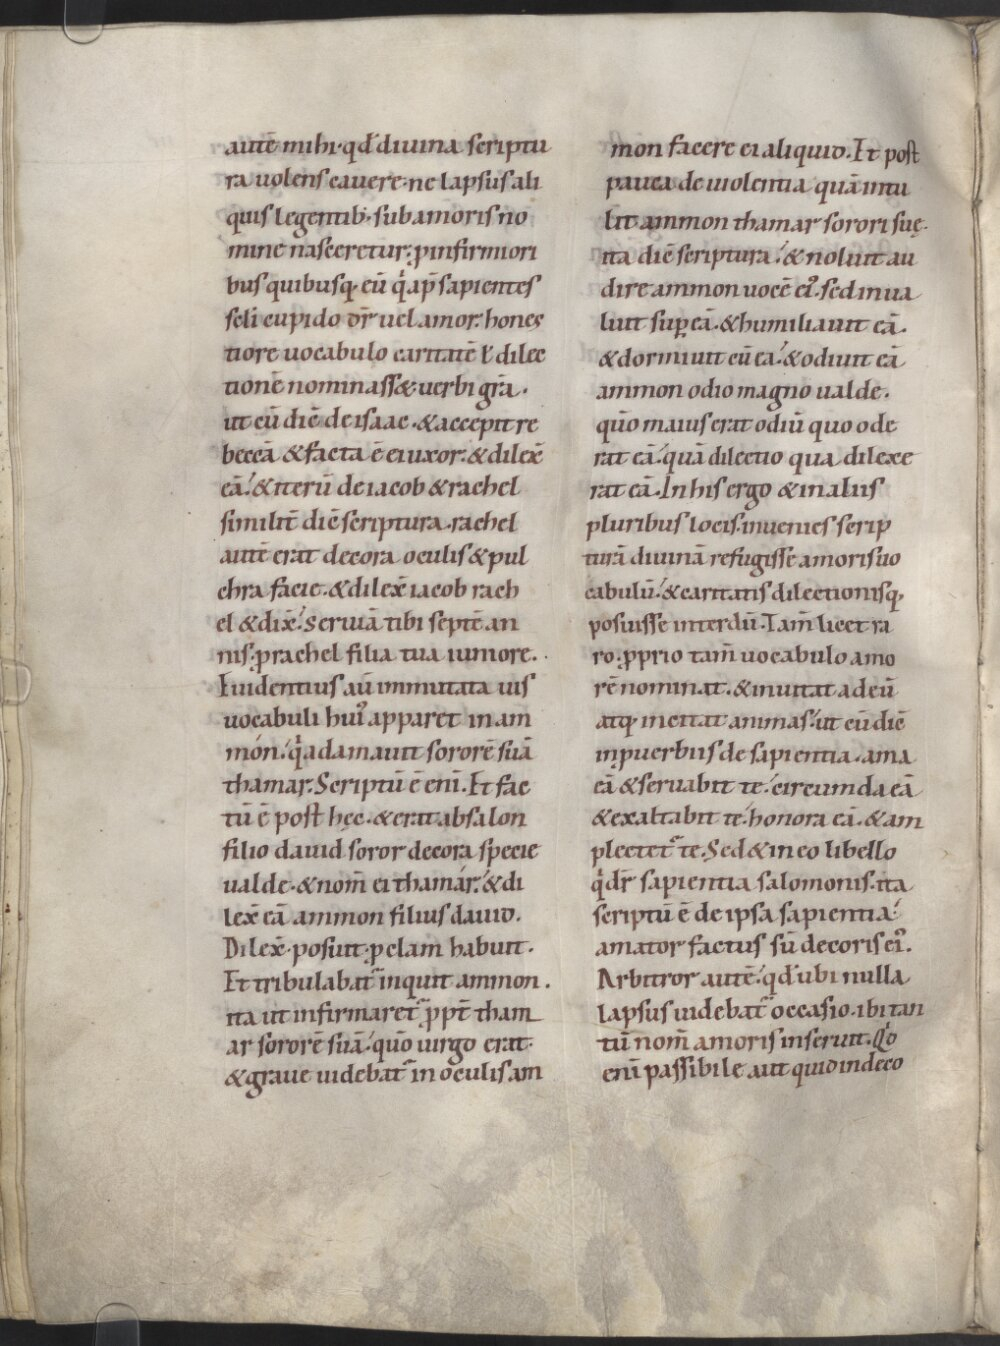 autē mihi·qđ diuina scriptu
ra uolens cauere·ne lapsus ali
quis legentib;·sub amoris no
mine nasceretur;·ꝑinfirmiori
bus quibusq; eū qͥ ap̄ sapientes
scl̄i cupido dr̄ uel amor·hones
tiore uocabulo caritatē ł dilec
tionē nominasse&·uerbi gr̄a·
ut cū diē de isaac·&accepit re
beccā &facta ē ei uxor·&dilex̄
eā·&iterū de iacob &rachel
similit̄ diē scriptura·rachel
autē erat decora oculis&pul
chra facie·&dilex̄ iacob rach
el &dix̄·Seruiā tibi septē an
nis·ꝓ rachel filia tua iuniore·
Euidentius aū immutata uis
uocabuli huiꝰ apparet in am
mon·qͥ adamauit sororē suā
thamar·Scriptū ē eni̅·Et fac
tū ē post hęc·&erat absalon
filio dauid soror decora specie
ualde·&nom̄ ei thamar·&di
lex̄ eā ammon filius dauid·
Dilex̄·posuit·ꝓ clam habuit·
Et tribulabat᷑ inquit ammon·
ita ut infirmaret᷑ ꝓpt̄ tham
ar sororē suā·qūo uirgo erat·
&graue uidebat᷑ in oculis am
mon facere ei aliquid·Et post
pauca de uiolentia quā intu
lit ammon thamar sorori suę·
ita diē scriptura·&noluit au
dire ammon uocē eiꝰ·sed inua
luit suꝑ eā·&humiliauit eā·
&dormiuit cū ea·&odiuit eā
ammon odio magno ualde·
qūo maius erat odiū quo ode
rat eā·quā dilectio qua dilexe
rat eā·In his ergo &in aliis
pluribus locis·inuenies scrip
turā diuinā refugisse amoris uo
cabulū·&caritatis dilectionisq;
posuisse interdū·Tam̄ licet ra
ro·ꝓprio tam̄ uocabulo amo
rē nominat·&inuitat ad eū
atq; incitat animas·ut cū diē
in ꝓuerbiis de sapientia·ama
eā &seruabit te·circumda eā
&exaltabit te·honora eā·&am
plectet᷑ te·Sed &in eo libello
qͥ dr̄ sapientia salomonis·ita
scriptū ē de ipsa sapientia·
amator factus sū decoris eiꝰ·
Arbitror autē·qđ ubi nulla
lapsus uidebat᷑ occasio·ibi tan
tū nom̄ amoris inseruit·Qͥd
eni̅ passibile aut quid indeco